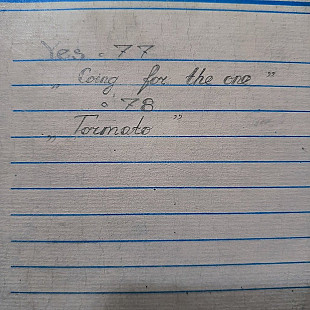 Yes. 77
„ Going for the one ”
. 78
„ Tormato ”